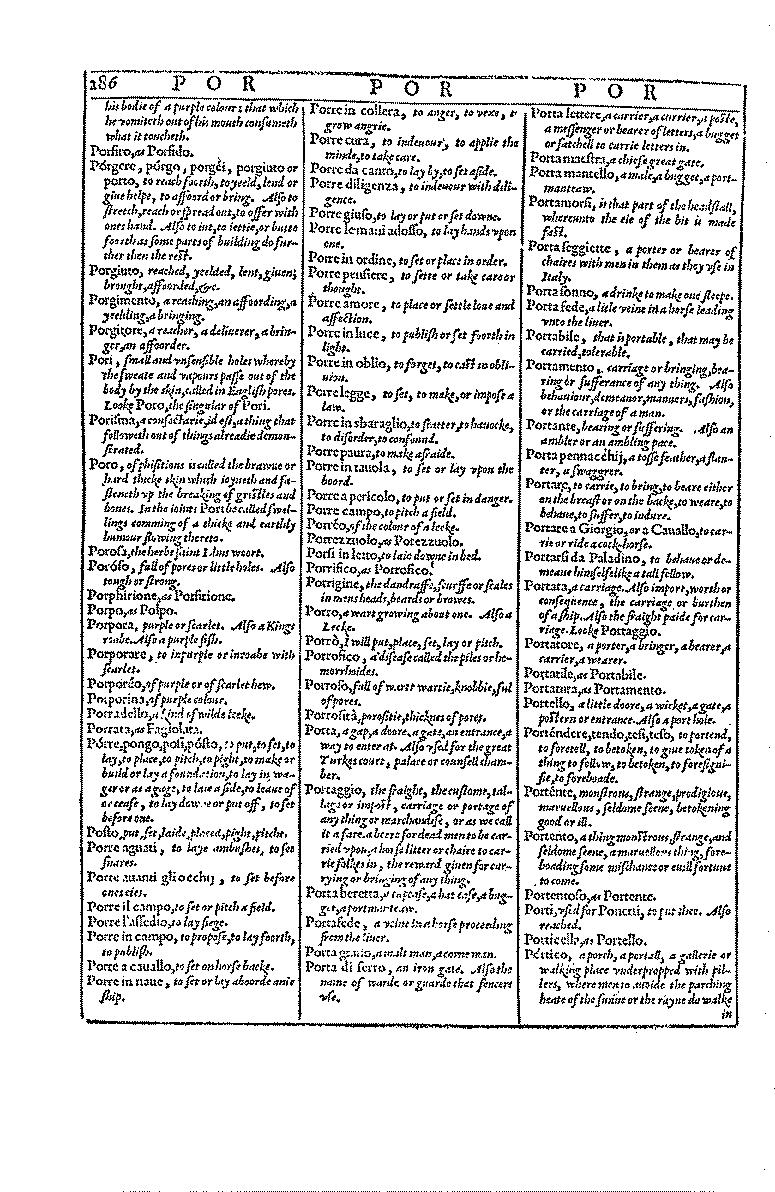 286 P O R P O R P O R
his bodie of a purple colour: that which
he vomiteth out of his mouth consumeth
what it toucheth.
Porfiro, as Porfido.
Pórgere, pórgo, porgéi, porgiuto or
porto, to reach foorth, to yeeld, lend or
giue helpe, to affoord or bring. Also to
stretch, reach or spread out, to offer with
ones hand. Also to iut, to iettie, or butte
foorth as some parts of building do fur-
ther then the rest.
Porgiuto, reached, yeelded, lent, giuen;
brought, affoorded, &c.
Porgimento, a reaching, an affoording, a
yeelding, a bringing.
Porgitore, a reacher, a deliuerer, a brin-
ger, an affoorder.
Pori, small and vnsensible holes whereby
the sweate and vapours passe out of the
body by the skin, called in English pores.
Looke Poro, the singular of Pori.
Porisma, a consectarie, id est, a thing that
followeth out of things alreadie demon-
strated.
Poro, of phisitions is called the brawne or
hard thicke skin which ioyneth and fa-
stneth vp the breaking of gristles and
bones. In the ioints Pori be called swel-
lings comming of a thicke and earthly
humour flowing thereto.
Porofa, the herbe saint Iohns woort.
Poróso, full of pores or little holes. Also
tough or strong.
Porphirione, as Porfirione.
Porpo, as Polpo.
Porpora, purple or scarlet. Also a Kings
robe. Also a purple fish.
Porporare, to inpurple or inroabe with
scarlet.
Porporéo, of purple or of scarlet hew.
Porporino, of purple colour.
Porradello, a kind of wilde leeke.
Porrata, as Fagiolata.
Pórre, pongo, posi, pósto, to put, to set, to
lay, to place, to pitch, to pight, to make or
build or lay a foundation, to lay in wa-
ger or as a gage, to laie aside, to leaue of
or cease, to lay downe or put off, to set
before one.
Posto, put, set, laide, placed, pight, pitcht.
Porre aguati, to laye ambushes, to set
snares.
Porre auanti gli occhij, to set before
ones eies.
Porre il campo, to set or pitch a field.
Porre l'assedio, to lay siege.
Porre in campo, to propose, to lay foorth,
to publish.
Porre a cauallo, to set on horse backe.
Porre in naue, to set or lay aboorde anie
ship.
Porre in collera, to anger, to vexe, to
grow angrie.
Porre cura, to indeuour, to applie the
minde, to take care.
Porre da canto, to lay by, to set aside.
Porre diligenza, to indeuour with dili-
gence.
Porre giuso, to lay or put or set downe.
Porre le mani adosso, to lay hands vpon
one.
Porre in ordine, to set or place in order.
Porre pensiere, to sette or take care or
thought.
Porre amore, to place or settle loue and
affection.
Porre in luce, to publish or set foorth in
light.
Porre in oblio, to forget, to cast in obli-
uion.
Porre legge, to set, to make, or impose a
law.
Porre in sbaraglio, to scatter, to hauocke,
to disorder, to confound.
Porre paura, to make afraide.
Porre in tauola, to set or lay vpon the
boord.
Porre a pericolo, to put or set in danger.
Porre campo, to pitch a field.
Porréo, of the colour of a leeke.
Porrezzuolo, as Porezzuolo.
Porsi in letto, to laie downe in bed.
Porrifico, as Porrofico.
Porrigine, the dandraffe, scurffe or scales
in mens heads, beards or browes.
Porro, a wart growing about one. Also a
Leeke.
Porrò, I will put, place, set, lay or pitch.
Porrofico, a disease called the piles or he-
morrhoides.
Porroso, full of warts wartie, knobbie, ful
of pores.
Porrosità, porositie, thicknes of pores.
Porta, a gap, a doore, a gate, an entrance, a
way to enter at. Also vsed for the great
Turkes court, palace or counsell cham-
ber.
Portaggio, the fraight, the custome, tal-
lage or impost, carriage or portage of
any thing or marchandise, or as we call
it a fare. a beere for dead men to be car-
ried vpon, a horse litter or chaire to car-
rie folkes in, the reward giuen for car-
rying or bringing of any thing.
Porta beretta, a capcase, a hat case, a bug-
get, a portmanteaw.
Portafede, a veine in a horse proceeding
from the liuer.
Porta grano, a malt man, a corne man.
Porta di ferro, an iron gate. Also the
name of warde or guarde that fencers
vse.
Porta lettere, a carrier, a currier, a poste,
a messenger or bearer of letters, a bugget
or satchell to carrie letters in.
Porta maestra, a chiefe great gate.
Porta mantello, a male, a bugget, a port-
manteaw.
Portamorsi, is that part of the headstall,
whereunto the eie of the bit is made
fast.
Porta seggiette, a porter or bearer of
chaires with men in them as they vse in
Italy.
Porta sonno, a drinke to make one sleepe.
Porta fede, a litle veine in a horse leading
vnto the liuer.
Portabile, that is portable, that may be
carried, tolerable.
Portamento, carriage or bringing, bea-
ring or sufferance of any thing. Also
behauiour, demeanor, manners, fashion,
or the carriage of a man.
Portante, bearing or suffering. Also an
ambler or an ambling pace.
Porta pennacchij, a tosse feather, a flan-
ter, a swaggrer.
Portare, to carrie, to bring, to beare either
on the breast or on the backe, to weare, to
behaue, to suffer, to indure.
Portare a Giorgio, or a Cauallo, to car-
rie or ride a cockhorse.
Portarsi da Paladino, to behaue or de-
meane himselfe like a tall fellow.
Portata, a carriage. Also import, worth or
consequence, the carriage or burthen
of a ship. Also the fraight paide for car-
riage. Looke Portaggio.
Portatore, a porter, a bringer, a bearer, a
carrier, a wearer.
Portatile, as Portabile.
Portatura, as Portamento.
Portello, a little doore, a wicket, a gate, a
postern or entrance. Also a port hole.
Porténdere, tendo, tesi, teso, to portend,
to foretell, to betoken, to giue token of a
thing to follow, to betoken, to foresigni-
fie, to foreboade.
Porténte, monstrous, strange, prodigious,
maruellous, seldome seene, betokening
good or ill.
Portento, a thing monstrous, strange, and
seldome seene, a maruellous thing, fore-
boading some mischance or euill fortune
to come.
Portentoso, as Portente.
Porti, vsed for Ponerti, to put thee. Also
reached.
Porticello, as Portello.
Pórtico, a porch, a portall, a gallerie or
walking place vnderpropped with pil-
lers, where men to auoide the parching
heate of the sunne or the rayne do walke
in